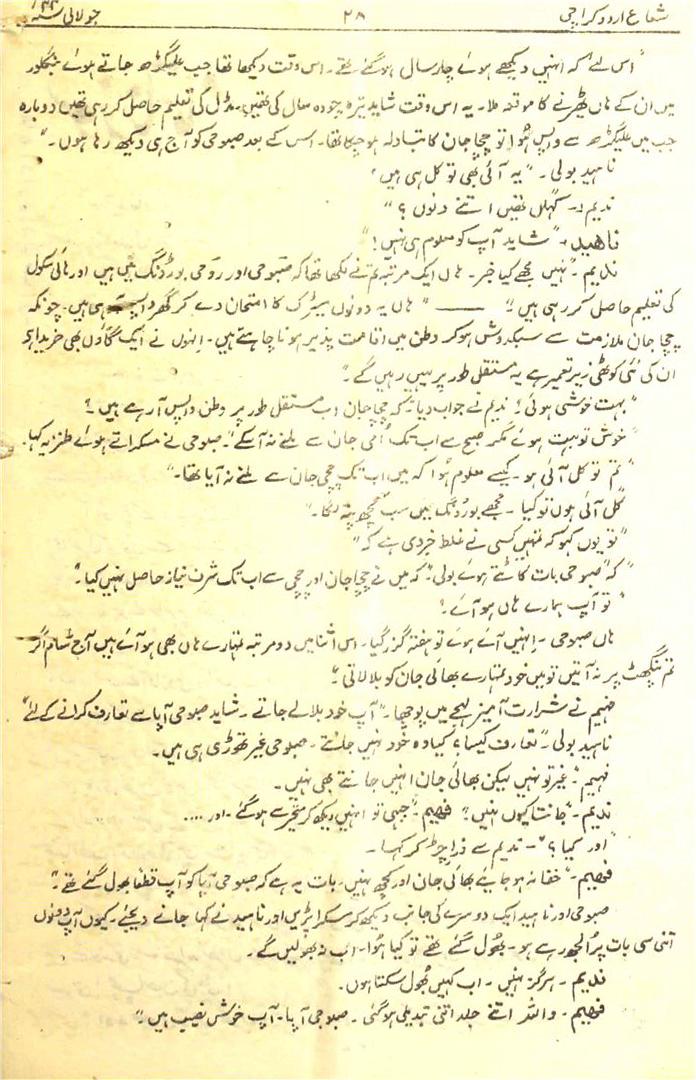 شعاع اردو کراچی ۲۸ جولائی سنہ ۴۴
"اس لئے کہ انہیں دیکھے ہوئے چار سال ہو گئے تھے۔ اس وقت دیکھا تھا جب علیگڑھ جاتے ہوئے بنگلور
میں ان کے ہاں ٹھیرنے کا موقعہ ملا۔ یہ اس وقت شاید تیرہ چودہ سال کی تھیں۔ مڈل کی تعلیم حاصل کر رہی تھیں دوبارہ
جب میں علیگڑھ سے واپس ہوا تو چچا جان کا تبادلہ ہو چکا تھا۔ اسس کے بعد صبوحی کو آج ہی دیکھ رہا ہوں۔"
ناہید بولی۔ "یہ آئی بھی تو کل ہی ہیں"
ندیم:۔ کہاں تھیں اتنے دنوں؟"
ناھید:۔ "شاید آپ کو معلوم ہی نہیں!"
ندیم۔ "نہیں مجھے کیا خبر۔ ہاں ایک مرتبہ تم نے لکھا تھا کہ صبوحی اور روحی بورڈنگ میں ہیں اور ہائی سکول
کی تعلیم حاصل کر رہی ہیں"۔ ——— "ہاں یہ دونوں میٹرک کا امتحان دے کر گھر واپس ہی ہیں۔ چونکہ
چچا جان ملازمت سے سبکدوش ہو کر وطن میں اقامت پذیر ہونا چاہتے ہیں۔ انہوں نے ایک گاؤں بھی خریدا ہے
ان کی نئی کوٹھی زیر تعمیر ہے یہ مستقل طور پر یہیں رہیں گے۔"
"بہت خوشی ہوئی! ندیم نے جواب دیا" کہ چچا جان اب مستقل طور پر وطن واپس آ رہے ہیں۔"
"خوش تو بہت ہوئے مگر صبح سے اب تک اُمی جان سے ملنے نہ آ سکے"۔ صبوحی نے مسکراتے ہوئے طنزیہ کہا۔
"تم تو کل آئی ہو۔ کیسے معلوم ہوا کہ میں اب تک چچی جان سے ملنے نہ آیا تھا۔"
"کل آئی ہوں تو کیا۔ مجھے بورڈنگ میں سب کچھ پتہ لگا۔"
"تو یوں کہو کہ تمہیں کسی نے غلط خبر دی ہے کہ"
"کہ" صبوحی بات کاٹتے ہوئے بولی" کہ میں نے چچا جان اور چچی سے اب تک شرف نیاز حاصل نہیں کیا۔"
"تو آپ ہمارے ہاں ہو آئے!
ہاں صبوحی۔ انہیں آئے ہوئے تو ہفتہ گزر گیا۔ اس اثنا میں دو مرتبہ تمہارے ہاں بھی ہو آئے ہیں آج شام اگر
تم پنگھٹ پر نہ آتیں تو میں خود تمہارے بھائی جان کو بلا لاتی"۔
فہیم نے شرارت آمیز لہجے میں پوچھا۔ "آپ خود بلالے جاتے۔ شاید صبوحی آپا سے تعارف کرانے کے لئے"
ناہید بولی" تعارف کیسا؟ کیا وہ خود نہیں جانتے۔ صبوحی غیر تھوڑی ہی ہیں۔
فہیم"۔ غیر تو نہیں لیکن بھائی جان انہیں جانتے بھی نہیں۔
ندیم۔ "جانتا کیوں نہیں" فھیم۔ "جبھی تو انہیں دیکھ کر متحیر سے ہو گئے۔ اور ....
"اور کیا؟"۔ ندیم سے ذرا چڑ کر کہا۔
فھیم۔ "خفا نہ ہو جائیے بھائی جان اور کچھ نہیں۔ بات یہ ہے کہ صبوحی آپا کو آپ قطعاً بھول گئے تھے۔"
صبوحی اور ناہید ایک دوسرے کی جانب دیکھ کر مسکرا پڑیں اور ناہید نے کہا جانے دیجئے۔ کیوں آپ دونوں
اتنی سی بات پر اُلجھ رہے ہو۔ بھول گئے تھے تو کیا ہوا۔ اب نہ بھولیں گے۔
ندیم۔ ہرگز نہیں۔ اب کہیں بھول سکتا ہوں۔
فھیم۔ واللہ اتنے جلد اتنی تبدیلی ہو گئی۔ صبوحی آپا۔ آپ خوش نصیب ہیں۔"